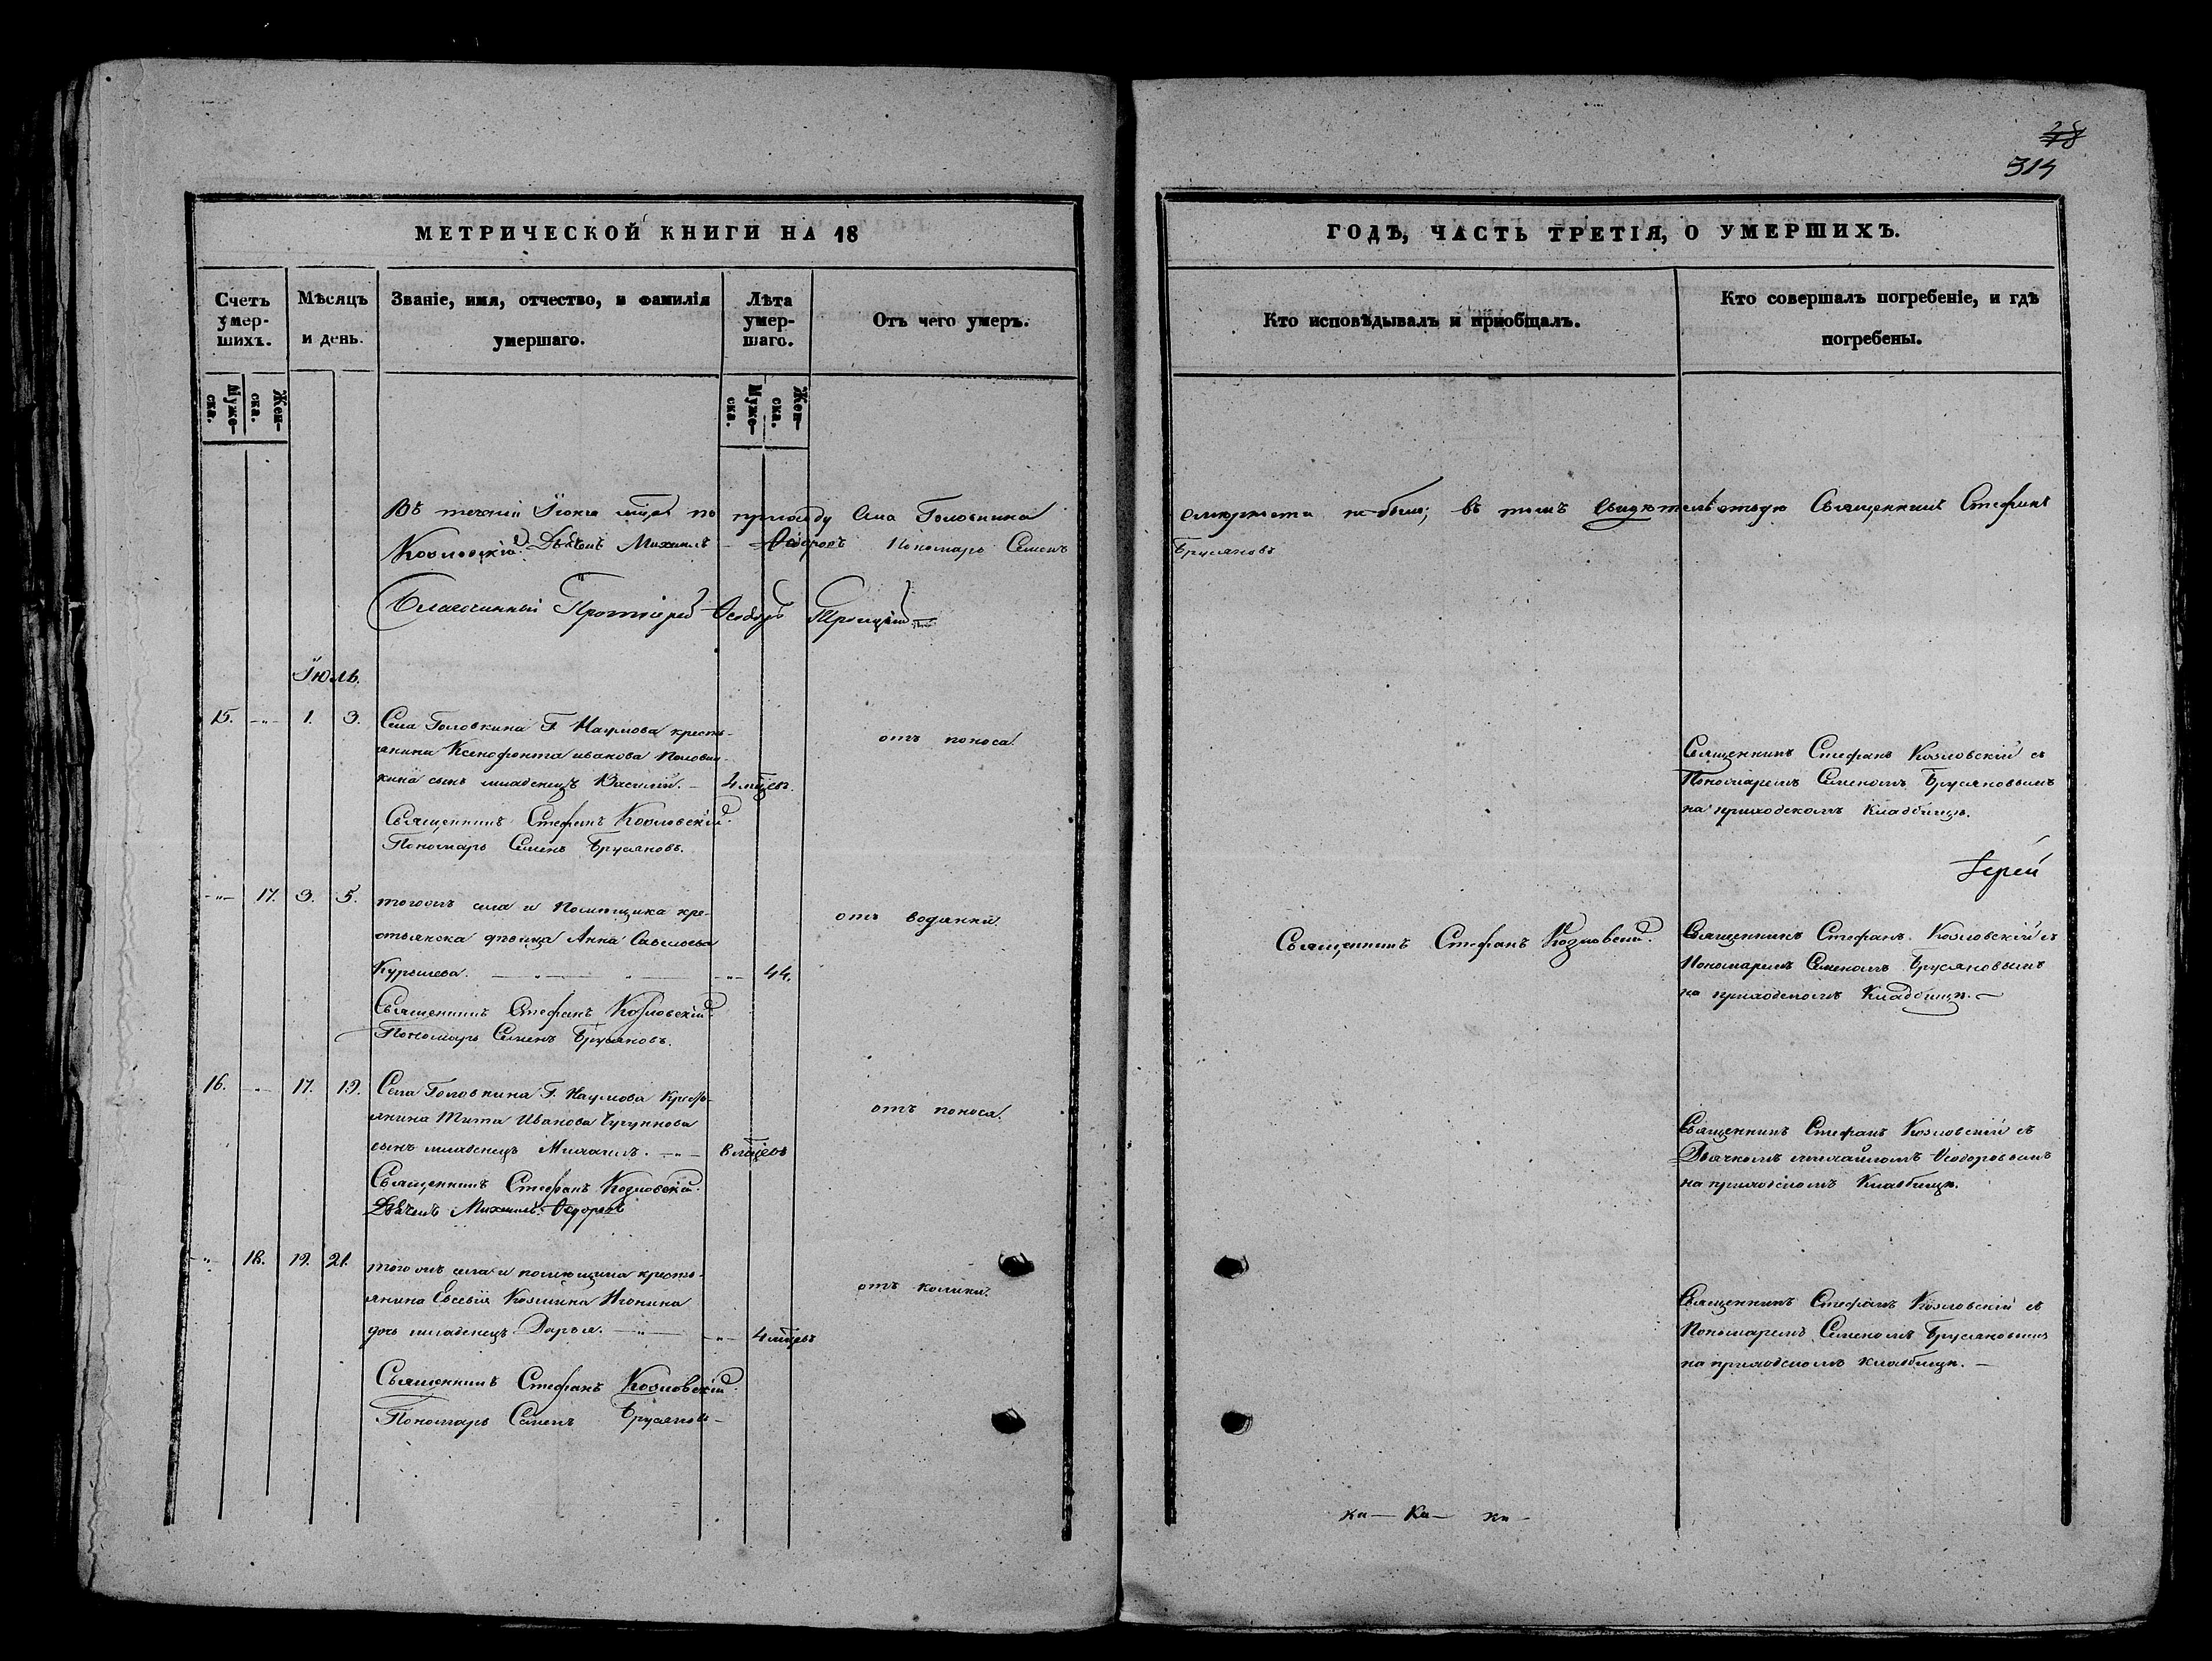 28
314
МЕТРИЧЕСКОЙ КНИГИ НА 18
Счетъ умер-шихъ.
Муже-ска.
Жен-ска.
Мѣсяцъ и день.
Званіе, имя, отчество, и фамилія умершаго.
Лѣта умер-шаго.
Муже-ска.
Жен-ска.
Отъ чего умеръ.
Въ теченіи Іюня по приходу села Головкина
Козловскій Дьячекъ Михаилъ Ѳедоровъ Пономарь Семенъ
Благочинный Протоіерей Ѳеодоръ Троицкій
Іюль.
15. -„- 1. 3. Села Головкина Г. Наумова кресть-
янина Ксенофонта иванова
сынъ младенецъ Василій. - 4 мцевъ.
отъ поноса.
Священникъ Стефанъ Козловскій.
Пономарь Семенъ Брусяновъ.
-„- 17. 3. 5. тогожъ села и Помѣщика кре-
стьянска дѣвица Анна Савельева
Курышева. -„- 44.
отъ водянки.
Священникъ Стефанъ Козловскій.
Пономарь Семенъ Брусяновъ.
16. -„- 17. 19. Села Головкина Г. Наумова Кресть-
янина Тита Иванова Чугунова
сынъ младенецъ Михаилъ. -„- 8 мцевъ
отъ поноса.
Священникъ Стефанъ Козловскій.
Дьячекъ Михаилъ Ѳедоровъ
-„- 18. 19. 21. тогожъ села и помѣщика кресть-
янина Евсевія Козмина Игонина
дочь младенецъ Дарья. -„- 4 мцевъ
отъ колики.
Священникъ Стефанъ Козловскій.
Пономарь Семенъ Брусяновъ
ГОДЪ, ЧАСТЬ ТРЕТІЯ, О УМЕРШИХЪ.
Кто исповѣдывалъ и пріобщалъ.
Кто совершалъ погребеніе, и гдѣ погребены.
не было; въ томъ свидѣтельствую Священникъ Стефанъ
Брусяновъ
Священникъ Стефанъ Козловскій съ
Пономаремъ Семеномъ Брусяновымъ
на приходскомъ кладбищѣ.
Іерей
Священникъ Стефанъ Козловскій.
Священникъ Стефанъ Козловскій съ
Пономаремъ Семеномъ Брусяновымъ
на приходскомъ Кладбищѣ.
Священникъ Стефанъ Козловскій съ
Дьячкомъ михайломъ Ѳеодоровымъ
на приходскомъ Кладбищѣ.
Священникъ Стефанъ Козловскій съ
Пономаремъ Семеномъ Брусяновымъ
на приходскомъ кладбищѣ. -